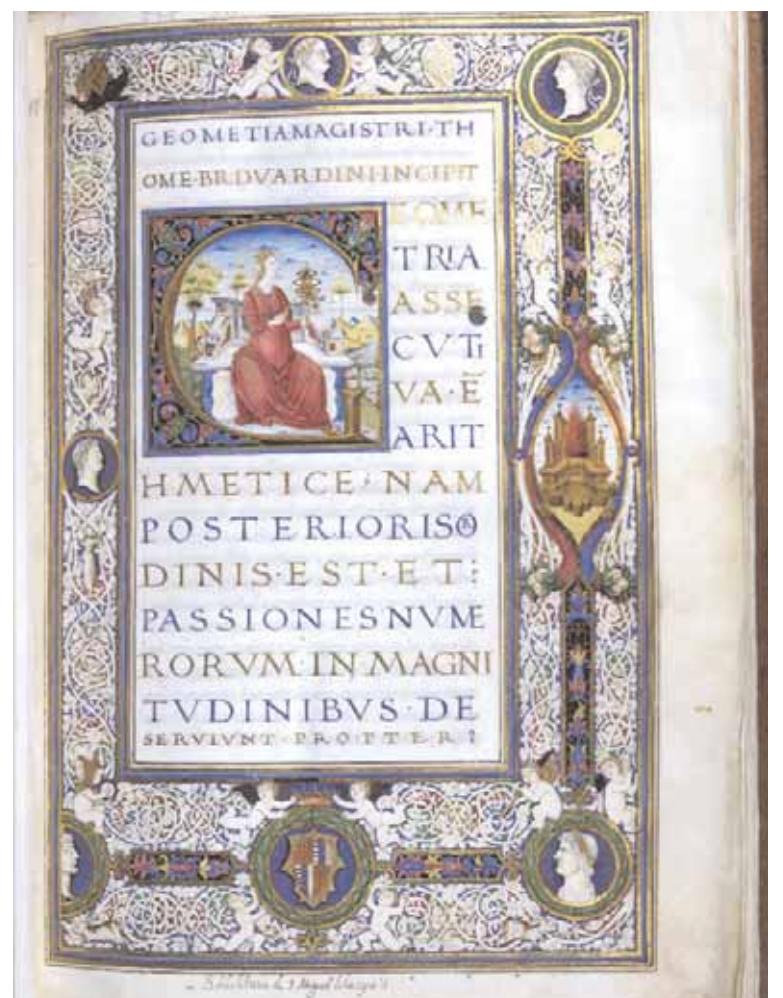 GEOMETIAMAGISTRI·TH
OME·BRDVARDINIINCIPIT
EOME
TRIA
ASSE
CVTI
VA·Ē
ARIT
HMETICE·NAM
POSTERIORIS
DINIS·EST·ET:
PASSIONESNVME
RORVM·IN·MAGNI
TVDINIBVS·DE
SERVIVNT·PROPTER